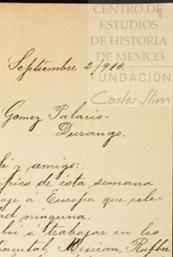 CENTRO DE
ESTUDIOS
DE HISTORIA
DE MEXICO
FUNDACIÓN
Carlos Slim
Septiembre 2/910.
Gomez Palacio-
Durango.
y amigo:
de ésta semana
a Europa que
ninguna.
á trabajar en las
Mexican, Rubber